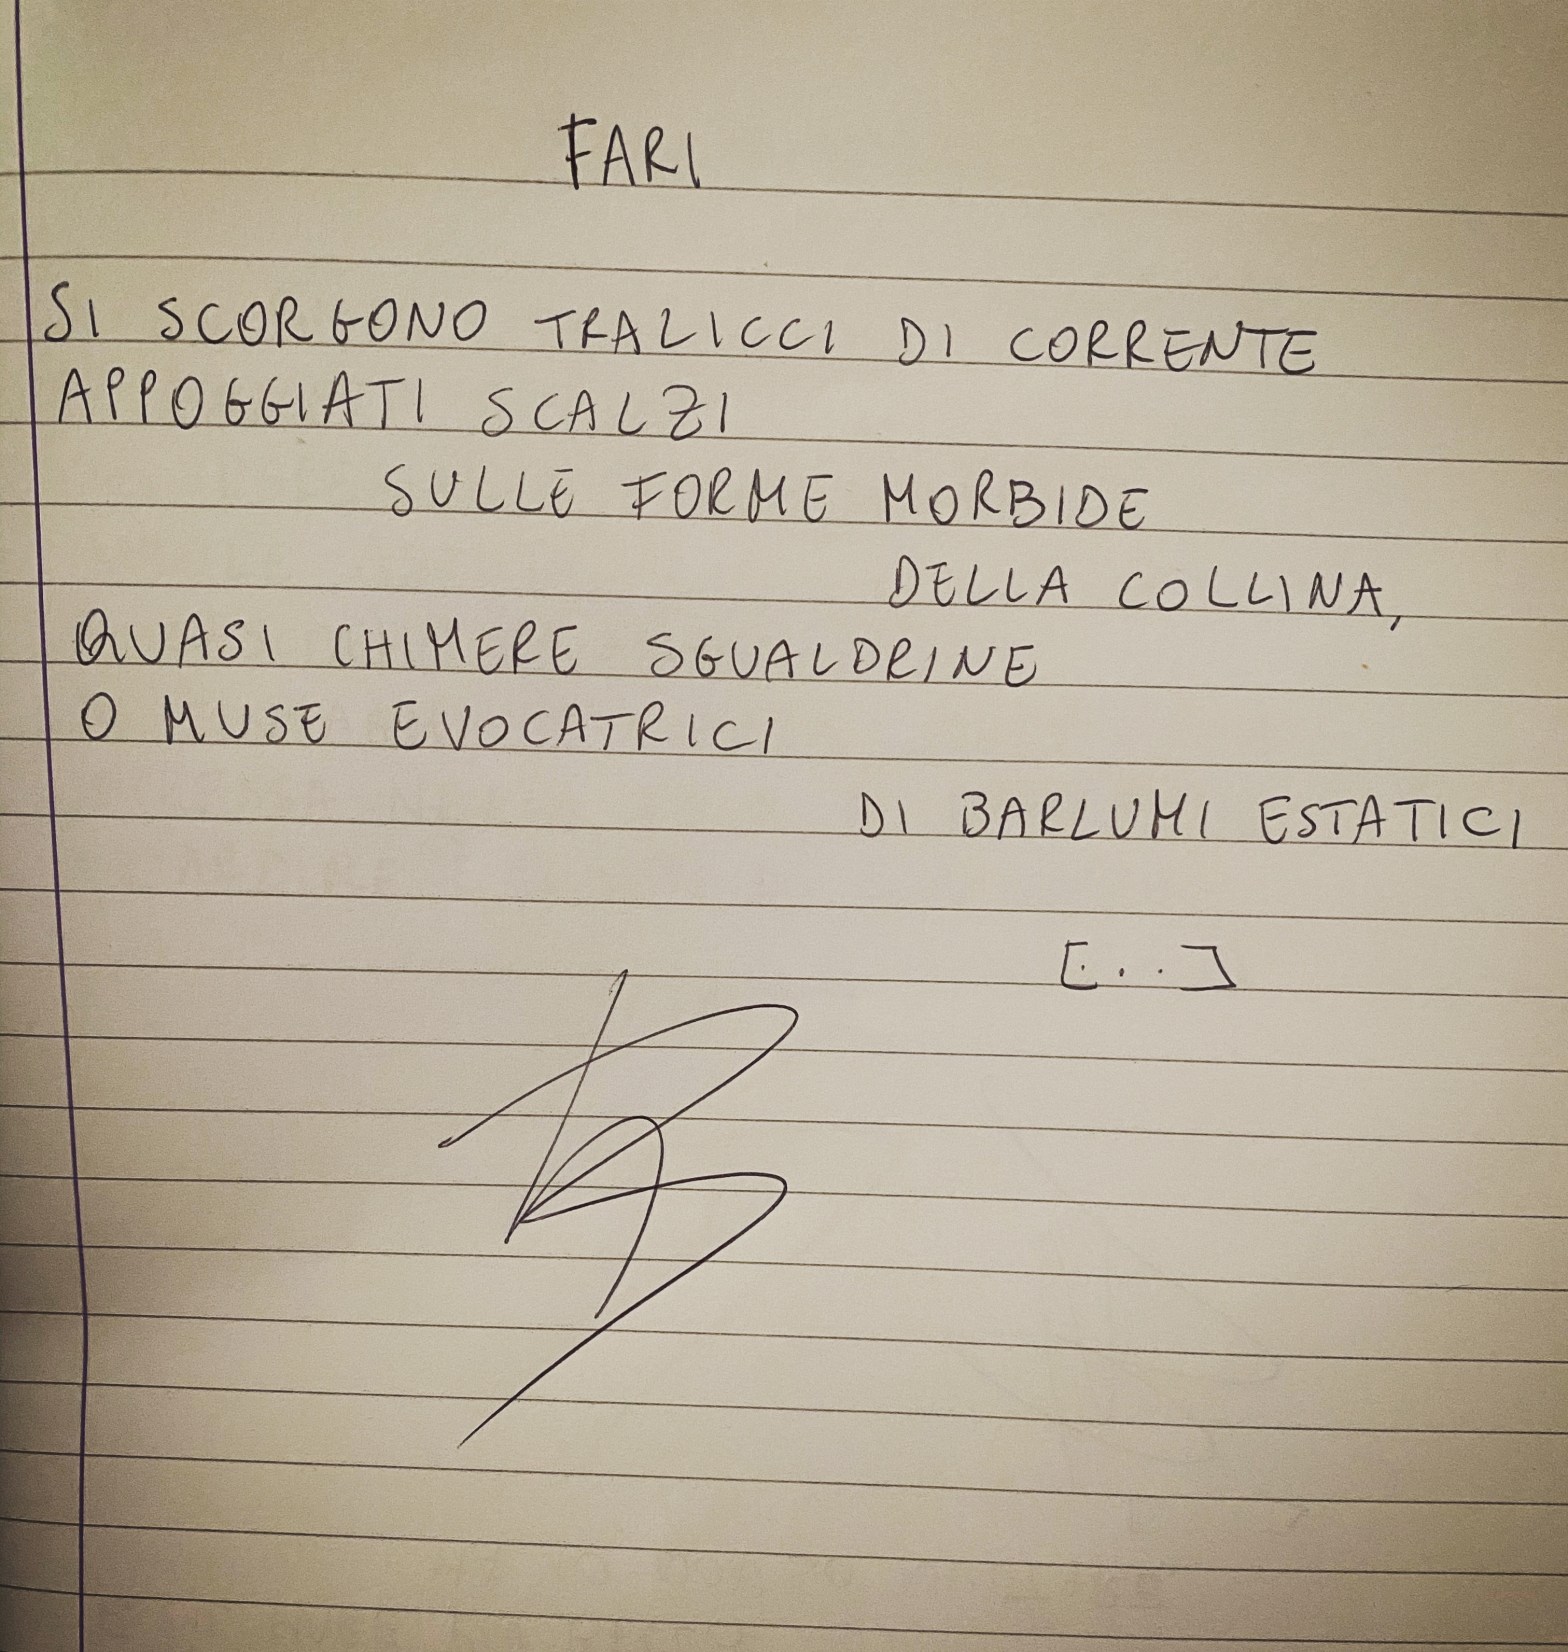 FARI
SI SCORGONO TRALICCI DI CORRENTE
APPOGGIATI SCALZI
SULLE FORME MORBIDE
DELLA COLLINA,
QUASI CHIMERE SGUALDRINE
O MUSE EVOCATRICI
DI BARLUMI ESTATICI
[...]